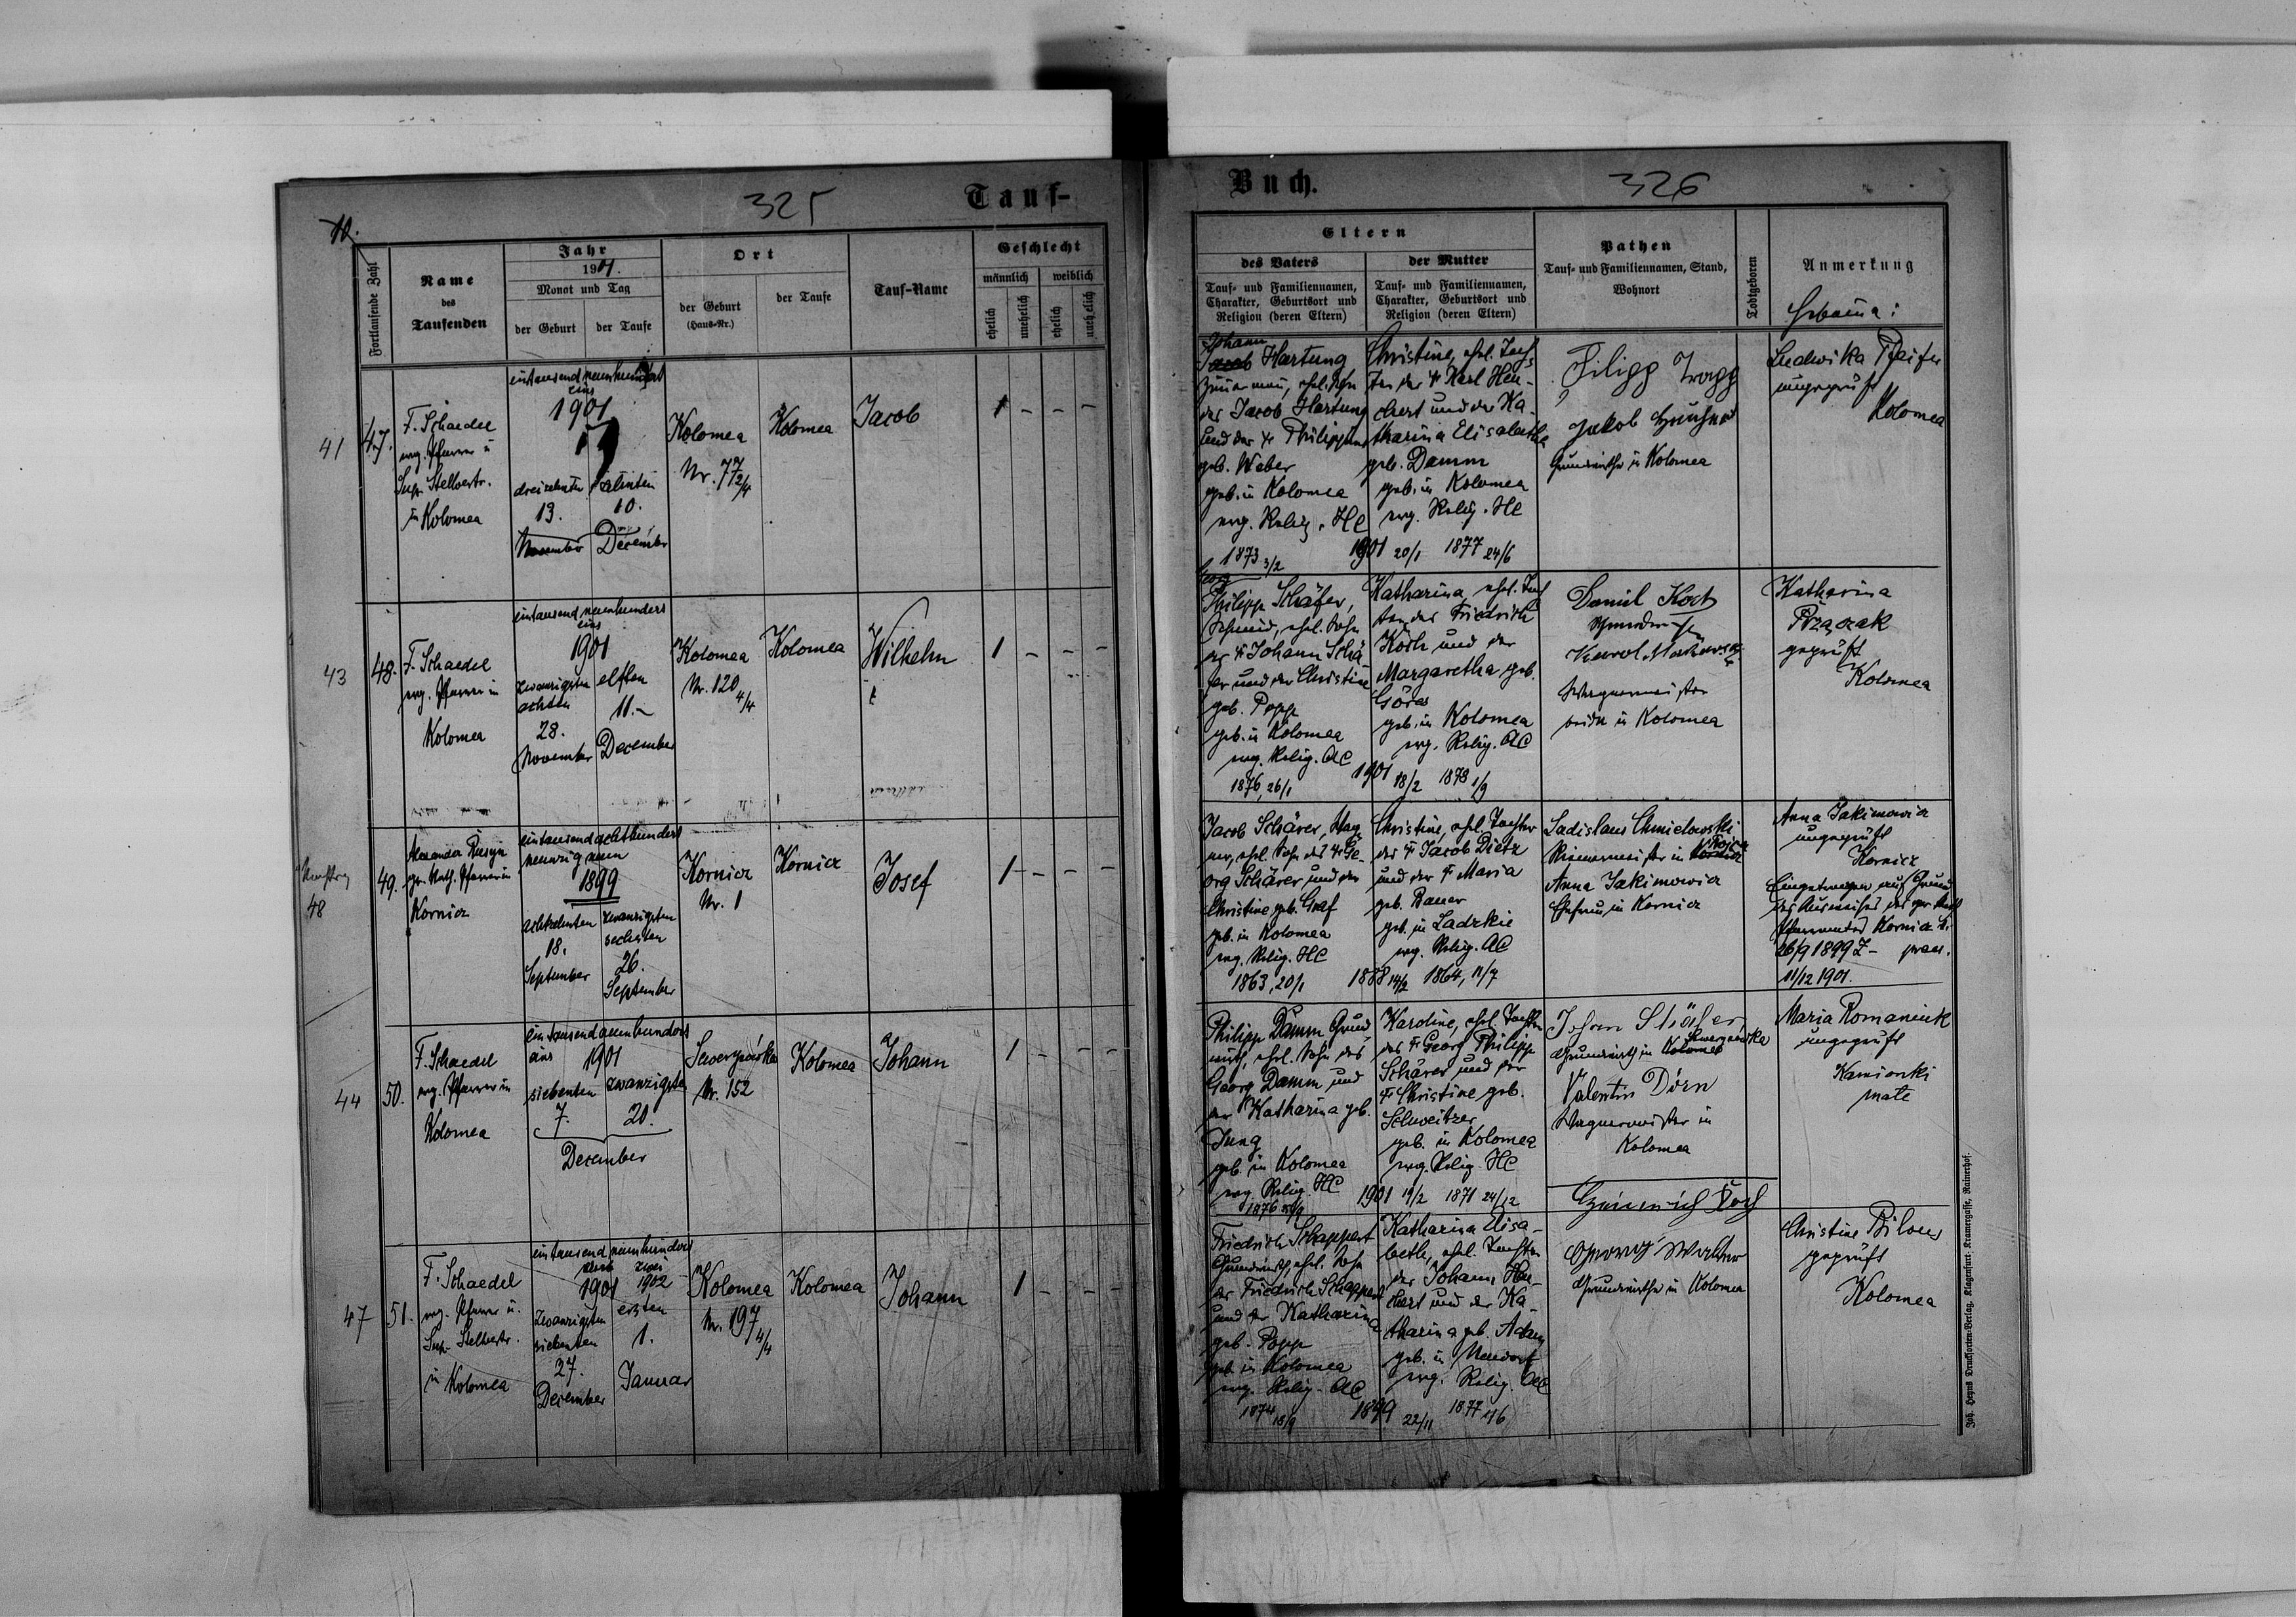 325
Tauf-
10.
Fortlaufende Zahl
Name
des
Taufenden
Jahr
1901.
Monat und Tag
der Geburt
der Taufe
Ort
der Geburt
(Haus-Nr.)
der Taufe
Tauf-Name
Geschlecht
männlich
weiblich
ehelich
unehelich
ehelich
unehelich
41
47.
F. Schaedel
evg. Pfarrer u
Sup. Stellvertr.
in Kolomea
eintausend neunhundert
eins
1901
dreizehnten
13.
November
zehnten
10.
December
Kolomea
Nr. 77 2/4
Kolomea
Jacob
1 - - -
43
48.
F. Schaedel
evg. Pfarrer in
Kolomea
eintausend neunhundert
eins
1901
zwanzigsten
achten
28.
November
elften
11.-
December
Kolomea
Nr. 120 4/4
Kolomea
Wilhelm
1 - - -
48
49.
Alexander Rusyn
gr. kath. Pfarrer in
Kornicz
eintausend achthundert
neunzig neun
1899
achtzehnten
18.
September
zwanzigsten
sechsten
26.
September
Kornicz
Nr. 1
Kornicz
Josef
1 - - -
44
50.
F. Schaedel
evg. Pfarrer in
Kolomea
eintausend neunhundert
eins 1901
siebenten
7.
zwanzigsten
20.
December
Sewerynówka
Nr. 152
Kolomea
Johann
1 - - -
47
51.
F. Schaedel
evg. Pfarrer u.
Sup. Stellvertr.
in Kolomea
eintausend neunhundert
eins zwei
1901 1902
zwanzigsten
siebenten
27.
December
ersten
1.
Januar
Kolomea
Nr. 197 4/4
Kolomea
Johann
1 - - -
Buch.
326
Eltern
des Vaters
Tauf- und Familiennamen,
Charakter, Geburtsort und
Religion (deren Eltern)
der Mutter
Tauf- und Familiennamen,
Charakter, Geburtsort und
Religion (deren Eltern)
Pathen
Tauf- und Familiennamen, Stand,
Wohnort
Todtgeboren
Anmerkung
Hebamme:
Johann
Jacob Hartung
Zimermann, ehel. Sohn
des Jacob Hartung
und der Philippine
geb. Weber
geb. in Kolomea
evg. Relig. HC
1873 3/2
Christine, ehel. Toch
ter des Karl Heu-
chert und der Ka-
tharina Elisabetha
geb. Damm
geb. in Kolomea
evg. Relig. HC
1901 20/1 1877 24/6
Filipp Trapp
Jakob
Grundwirthe in Kolomea
Ludwika Pfeifer
ungeprüft
Kolomea
Georg
Philipp Schäfer,
Schmied, ehel. Sohn
des Johann Schä-
fer und der Christine
geb. Popp
geb. in Kolomea
evg. Relig. AC
1876, 26/1
Katharina, ehel. Toch
ter des Friedrich
Koch und der
Margaretha geb.
Göres
geb. in Kolomea
evg. Relig. AC
1901 18/2 1878 1/9
Daniel Koch
Karol
Wagnermeister
beide in Kolomea
Katharina
geprüft
Kolomea
Jacob Schärer, Wag
ner, ehel. Sohn des Ge-
org Schärer und der
Christine geb. Graf
geb. in Kolomea
evg. Relig. HC
1863, 20/1
Christine, ehel. Tochter
des Jacob Dietz
und der Maria
geb. Bauer
geb. in Ladzkie
evg. Relig. AC
1888 14/2 1864, 11/7
Ladislaus Chmielowski
Riemermeister in
Anna Jakimowicz
Ehefrau in Kornicz
Anna Jakimowicz
ungeprüft
Kornicz
Eingetragen auf Grund
des Ausweises des gr. kath
Pfarramtes Kornicz d.
26/9 1899 Z- praes.
11/12 1901.
Philipp Damm Grund
wirth, ehel. Sohn des
Georg Damm und
der Katharina geb.
Jung
geb. in Kolomea
evg. Relig. HC
1876
Karoline, ehel. Tochter
des Georg Philipp
Schärer und der
Christine geb.
Schweitzer
geb. in Kolomea
evg. Relig. HC
1901 19/2 1871 24/12
Johann Stöher
Grundwirth in Kolomea Sewerynówka
Valentin Dörn
Wagnermeister in
Kolomea
Maria Romaniuk
ungeprüft
Kamionki
małe
Friedrich Schappert
Grundwirth, ehel. Sohn
des Friedrich Schappert
und der Katharina
geb. Popp
geb. in Kolomea
evg. Relig. AC
1874 18/9
Katharina Elisa-
beth, ehel. Tochter
des Johann Heu-
chert und der Ka-
tharina geb. Adam
geb. in Neudorf
evg. Relig. AC
1899 22/11 1877
Heinrich Koch
Grundwirthe in Kolomea
Christine
geprüft
Kolomea
Joh. Heyns Drucksorten-Verlag, Klagenfurt, Kramergasse, Rainerhof.